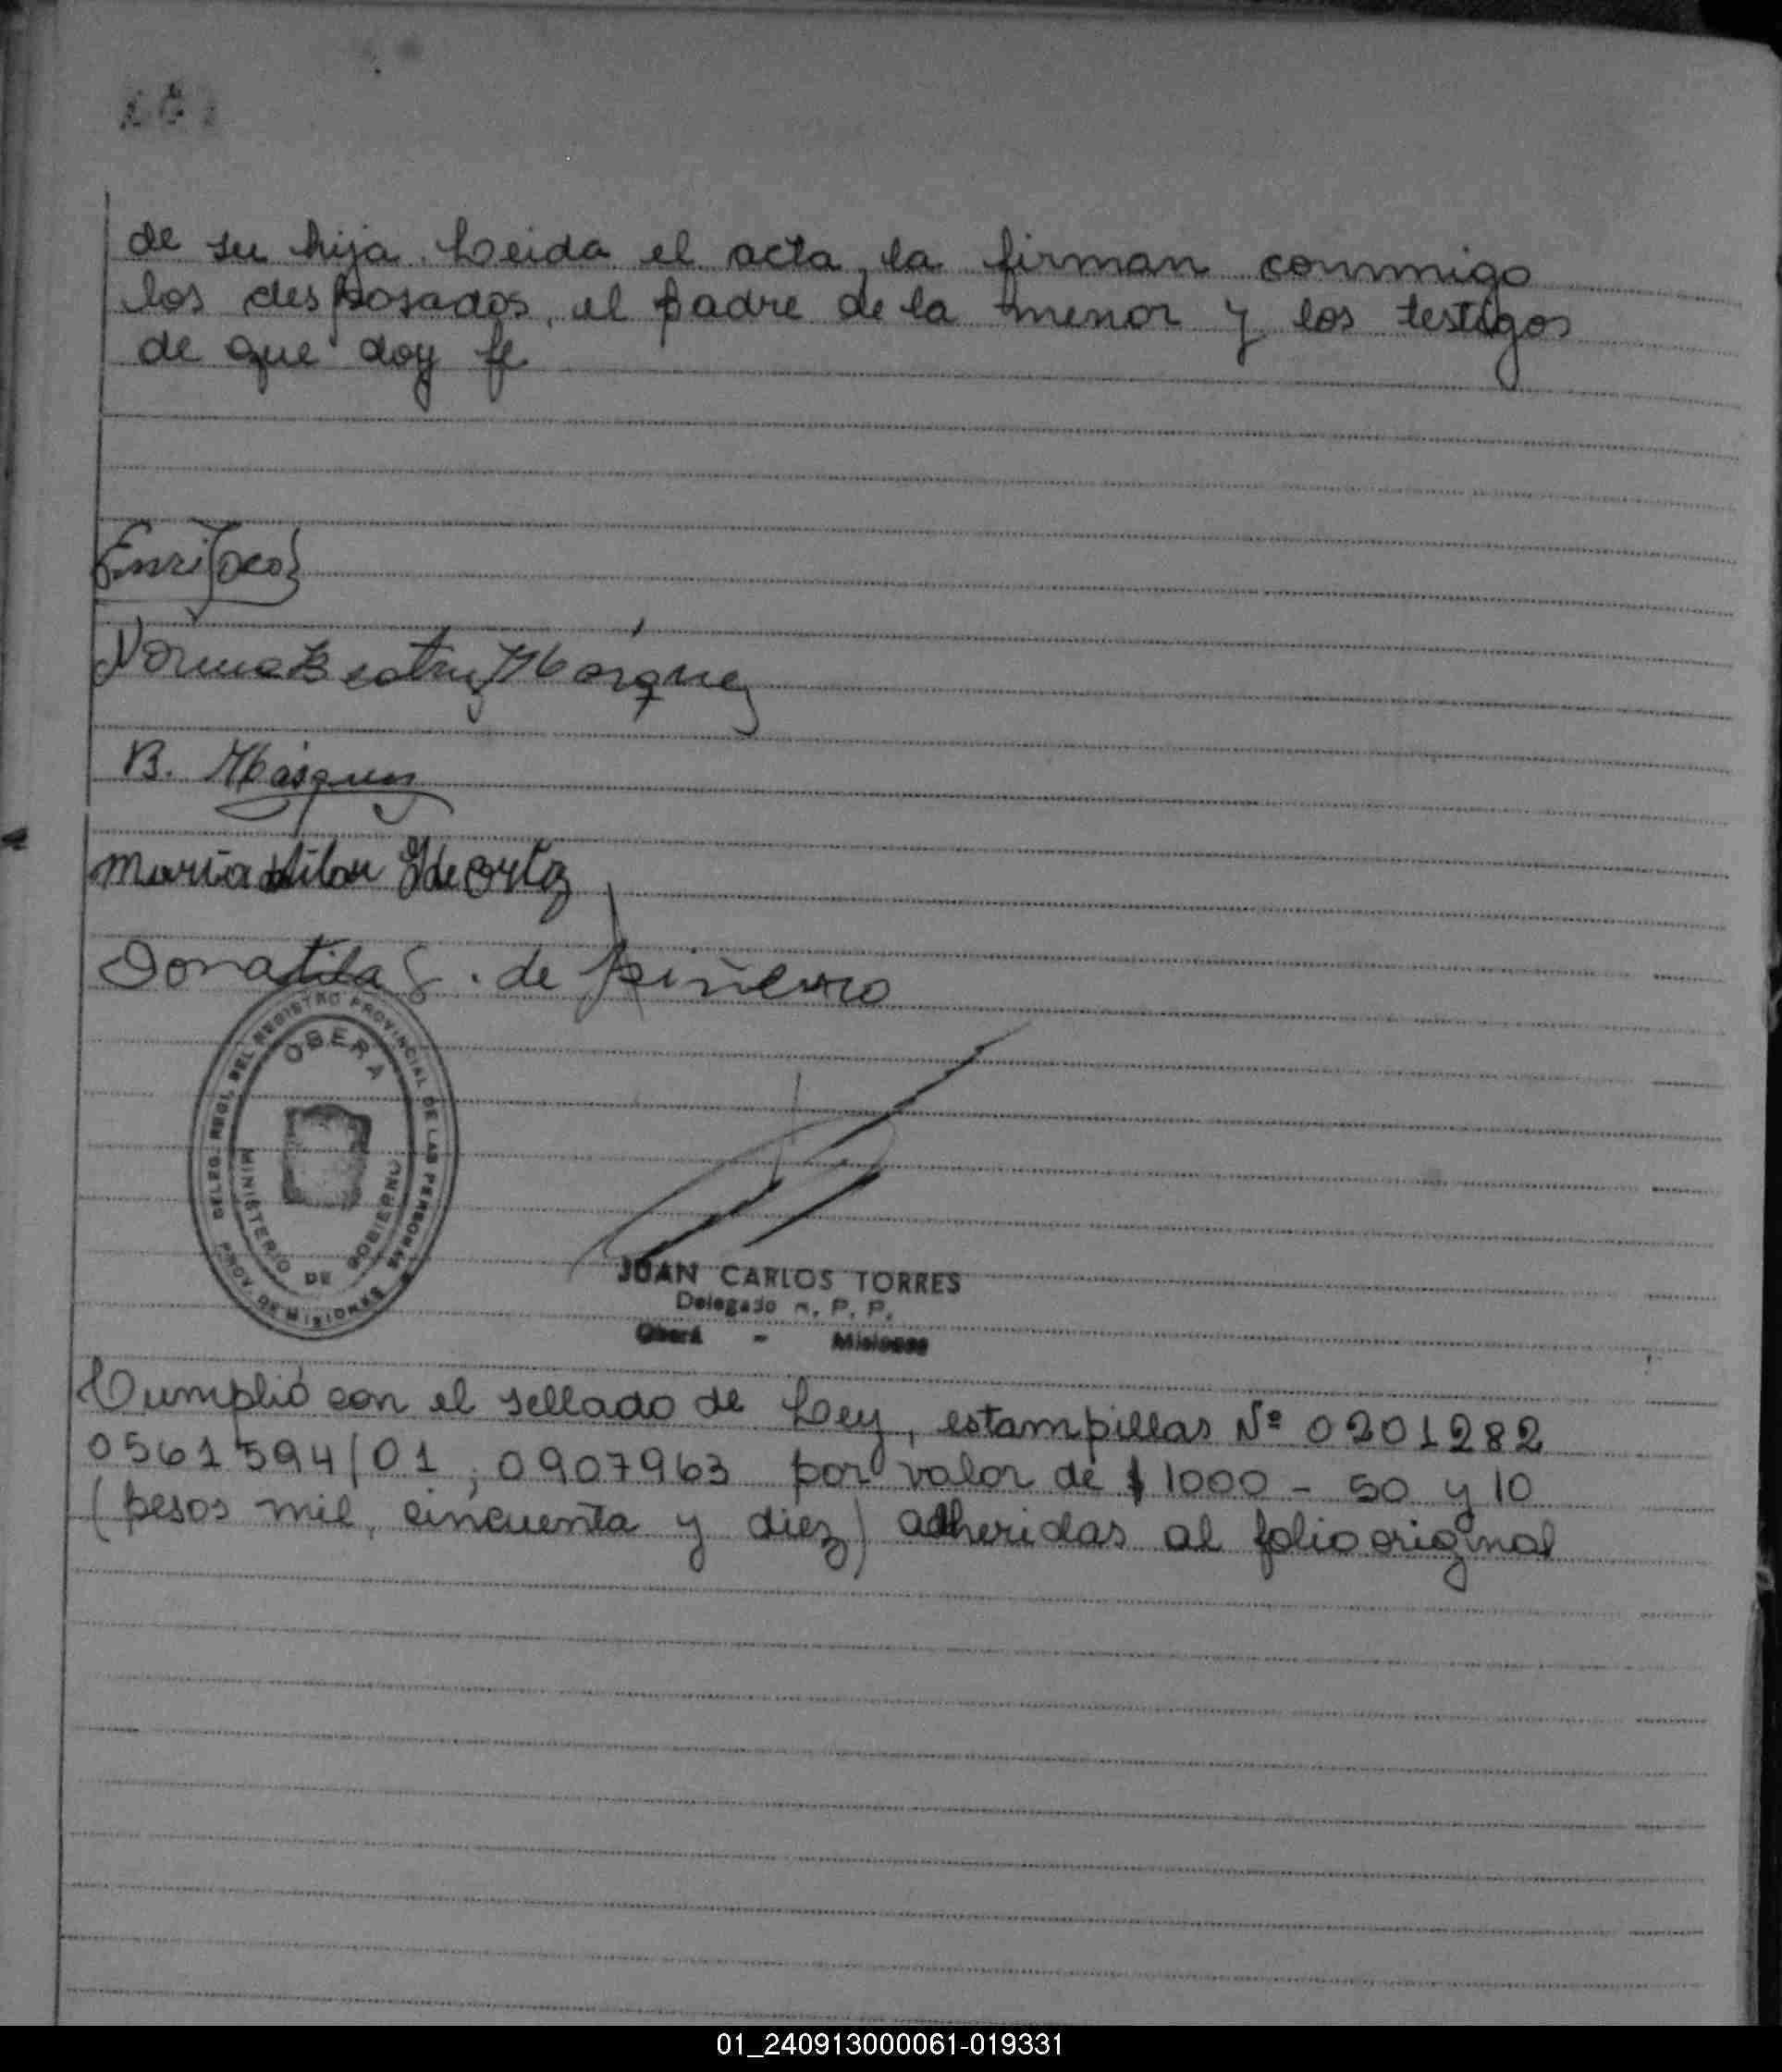 de su hija. Leida el acta, la firman conmmigo
los desposados, el padre de la menor y los testigos
de que doy fe
Norma Beatriz Márquez
B. Márquez
Maria de Ortiz
Donatila G. de Piñeiro
DELEG. REGL. DEL REGISTRO PROVINCIAL DE LAS PERSONAS
OBERA
MINISTERIO DE GOBIERNO
PROV. DE MISIONES
JUAN CARLOS TORRES
Delegado R. P. P.
Oberá - Misiones
Cumplió con el sellado de Ley, estampillas Nº 0201282
0561594/01; 0907963 por valor de $ 1000 - 50 y 10
(pesos mil, cincuenta y diez) adheridas al folio original
01_240913000061-019331